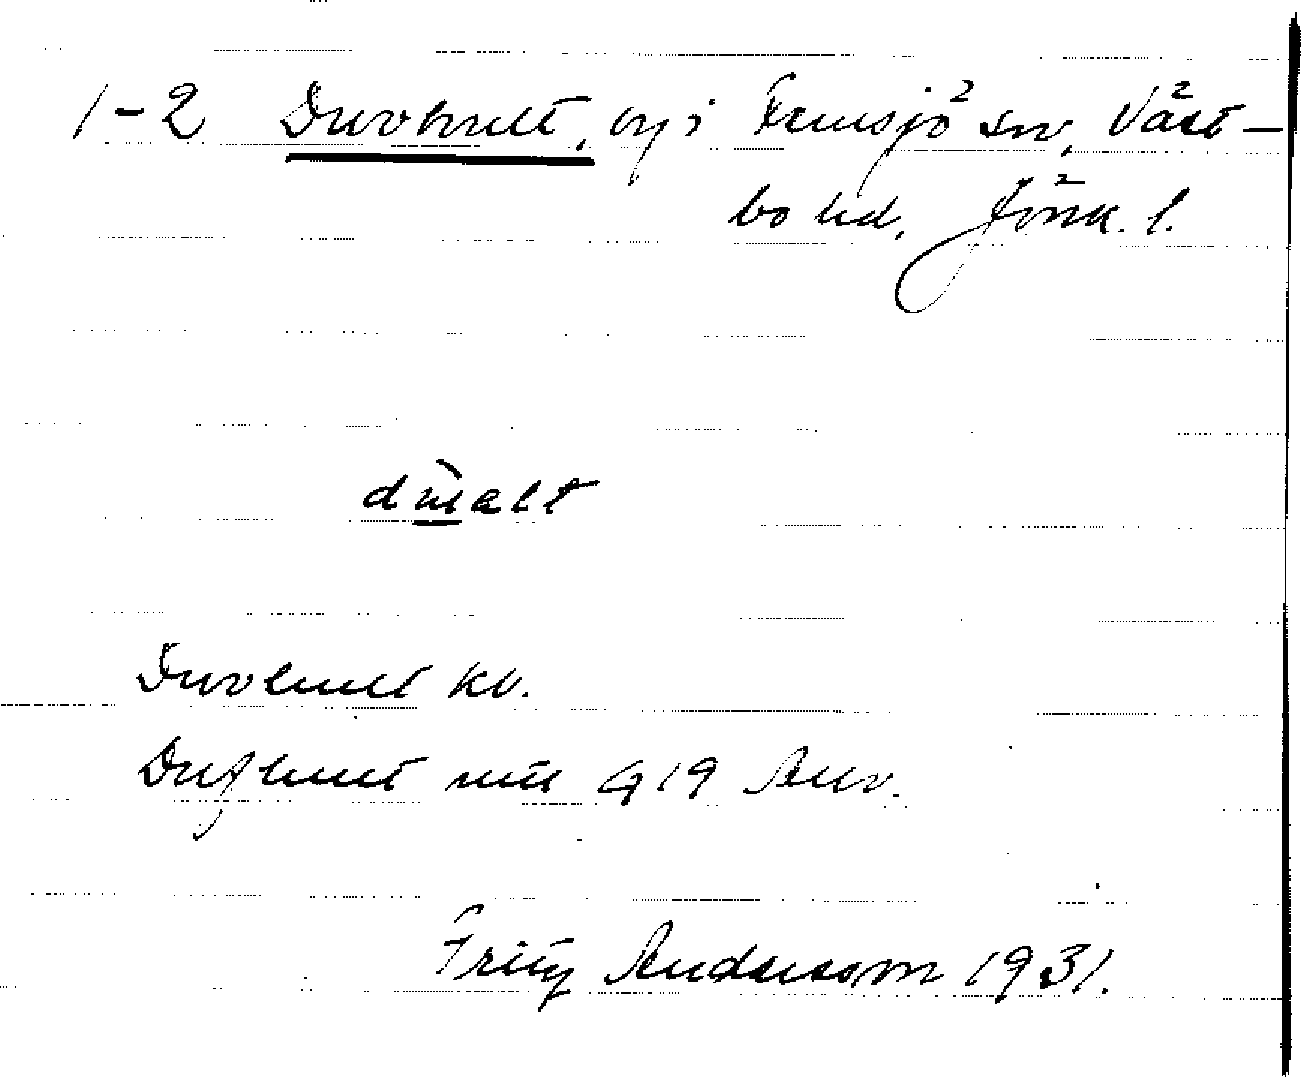 1-2 Duvhult, by i Femsjö sn, Väst-
bo hd, Jönk. l.
Duvhult kv.
Dufhult mtl 919 Bev.
Fritz Andersson 1931.